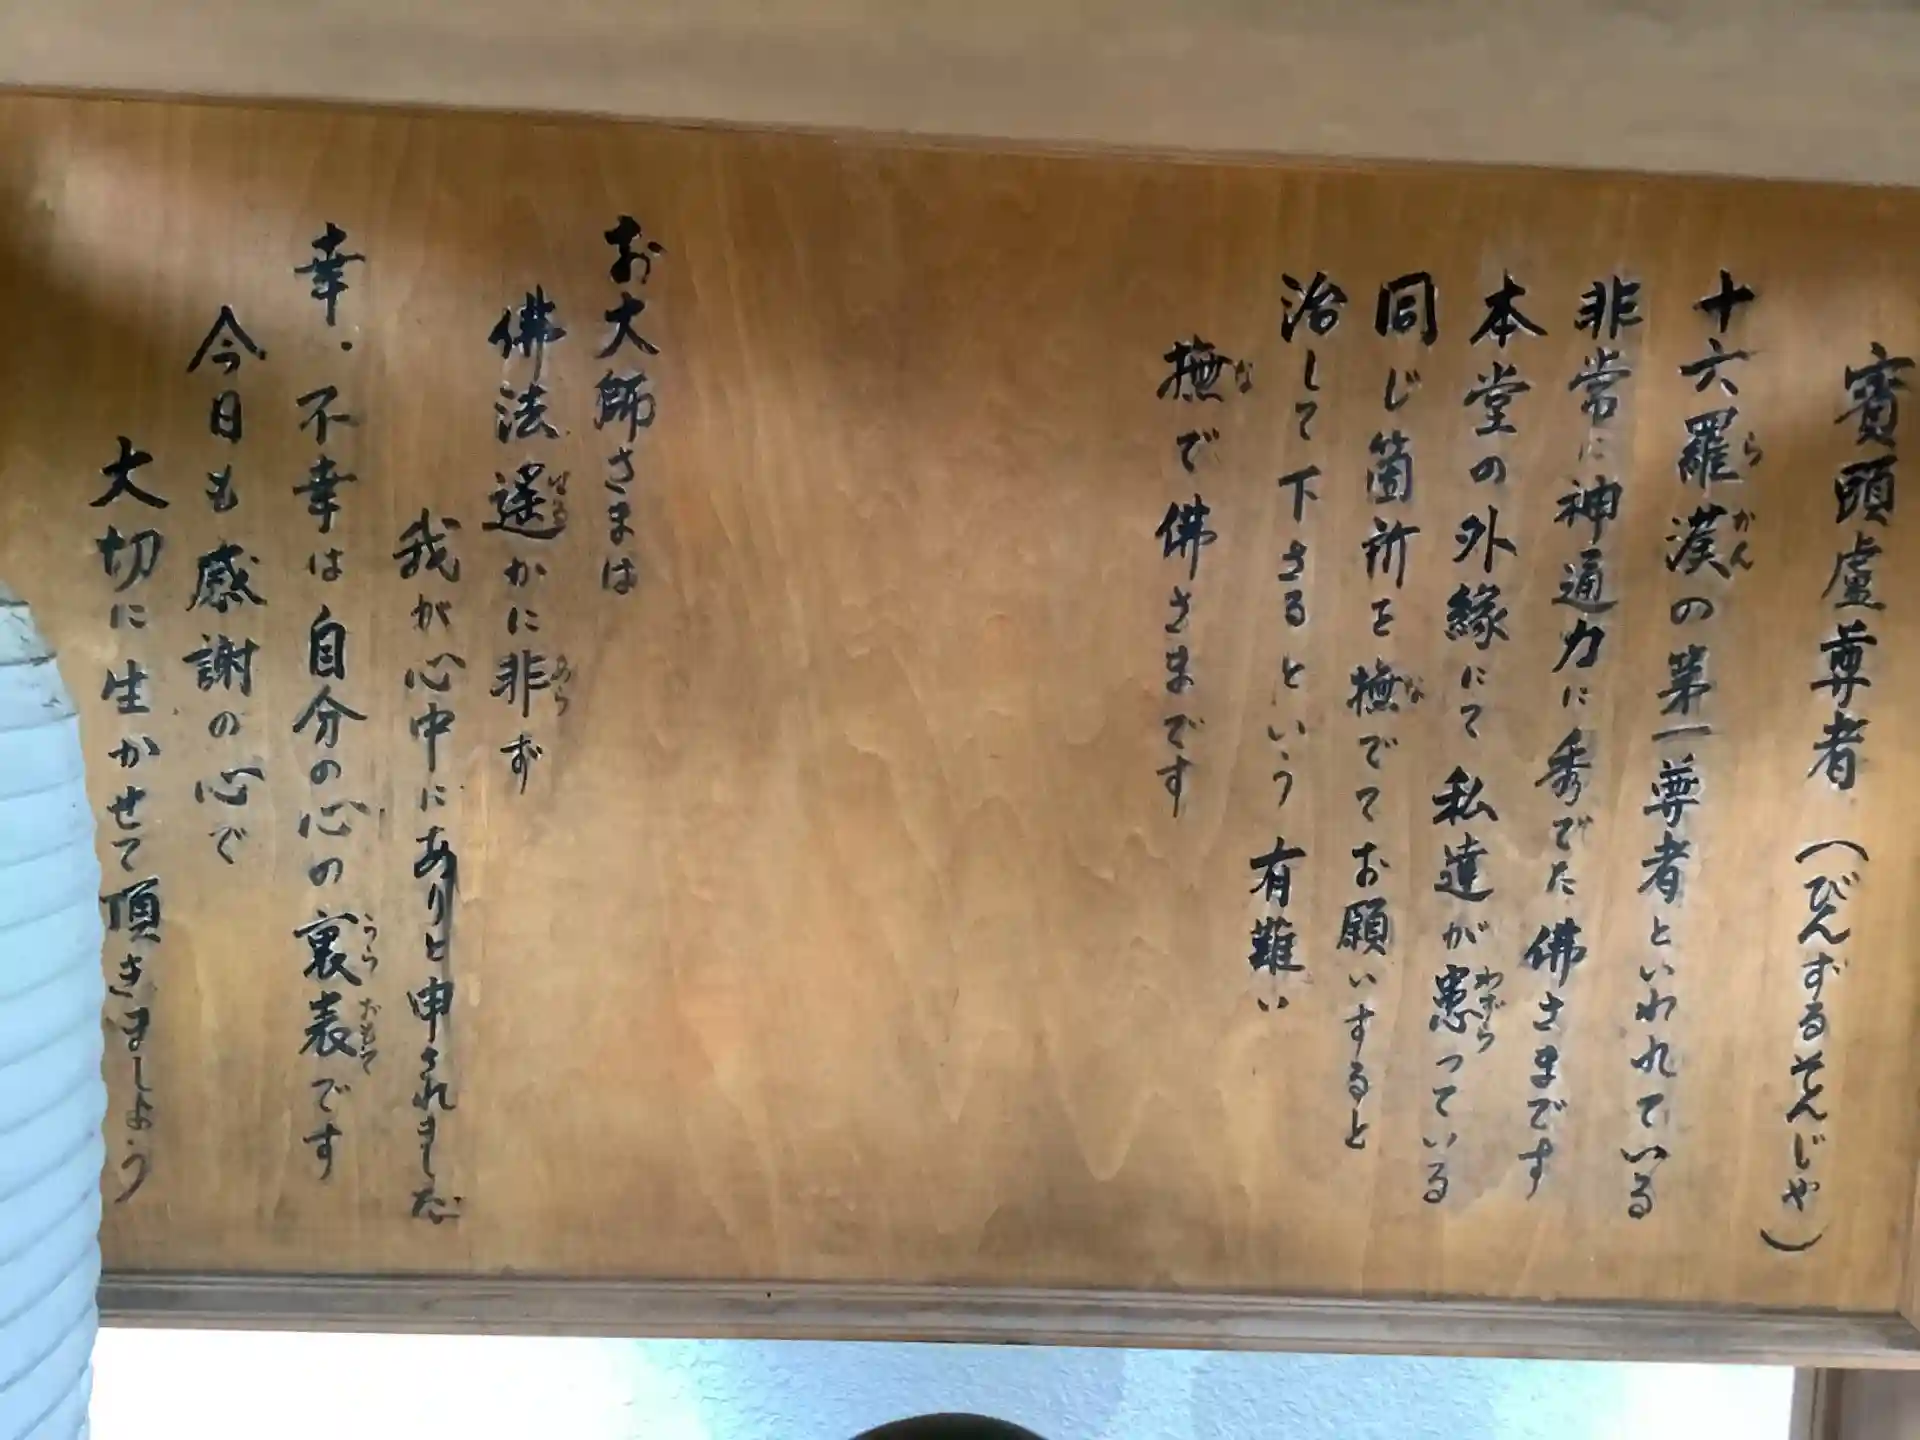 賓頭盧尊者(びんずるそんじゃ)
十六羅漢の第一尊者といわれている
非常に神通力に秀でた佛さまです
本堂の外縁にて私達が患っている
同じ箇所を撫でてお願いすると
治して下さるという有難い
撫で佛さまです
お大師さまは
佛法遥かに非ず
我が心中にありと申されました
幸・不幸は自分の心の裏表です
今日も感謝の心で
大切に生かせて頂きましょう